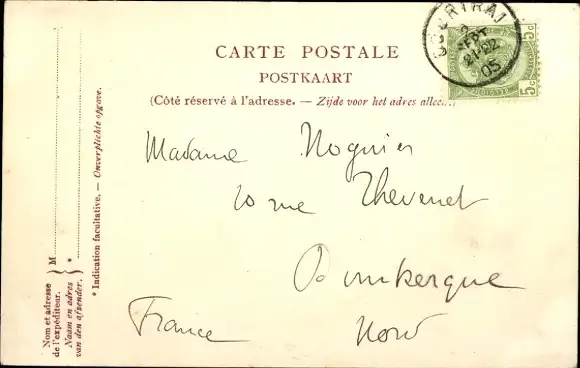 COURTRAI
2
SEPT
21-22
05
5c
5c
CARTE POSTALE
POSTKAART
(Côté réservé à l'adresse. — Zijde voor het adres alleen.)
Madame Noguier
10 rue Thevenet
Dunkerque
France Nord
* Indication facultative. — Onverplichte opgave.
M
*
Nom et adresse
de l'expéditeur.
Naam en adres
van den afzender.